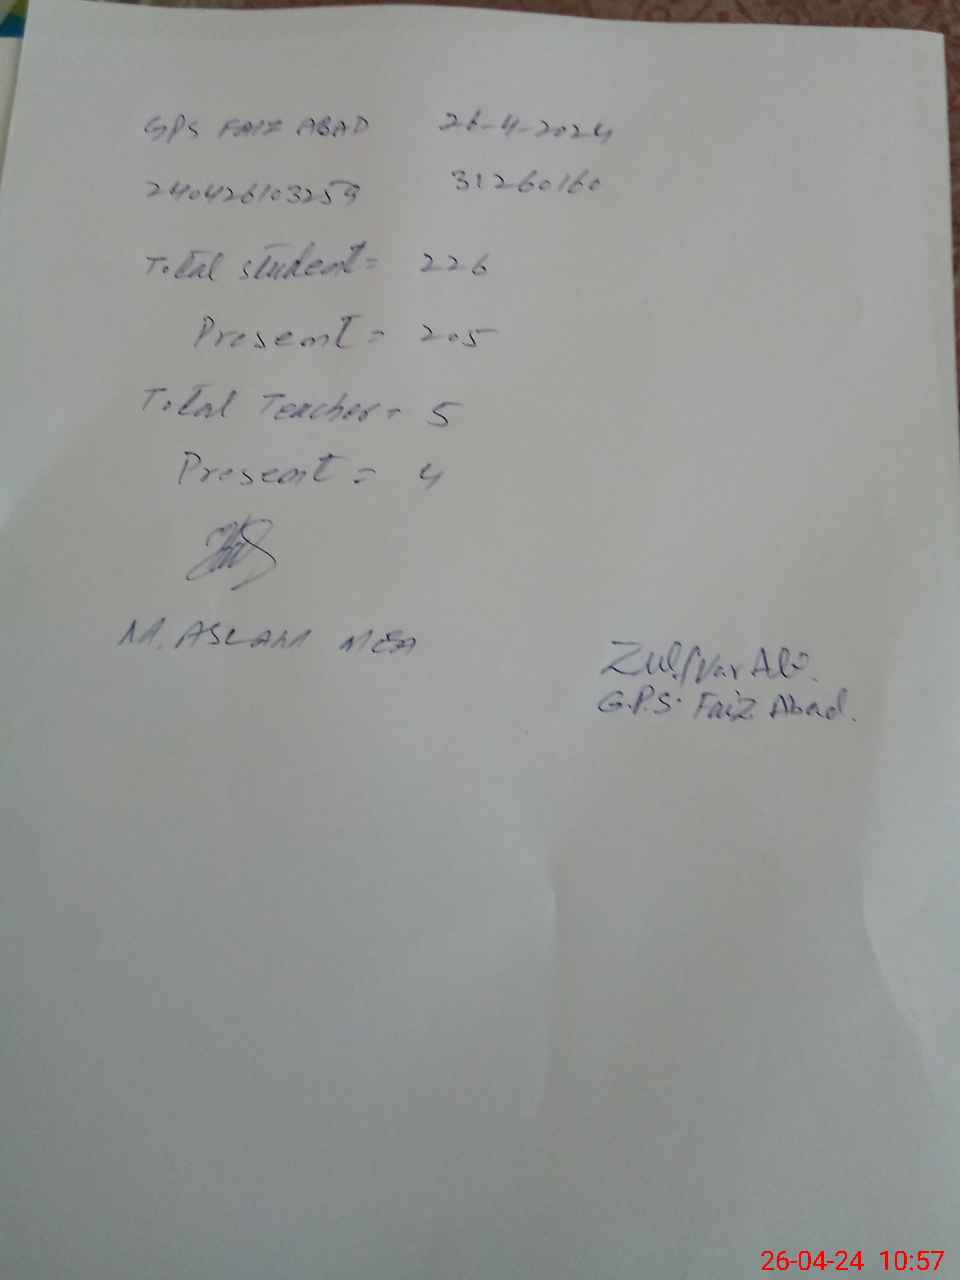 GPS FAIZ ABAD 26-4-2024
240426103259 31260160
Total student = 226
Present = 205
Total Teacher = 5
Present = 4
M. ASLAM MEA
Zulfqar Ali.
G.P.S. Faiz Abad.
26-04-24 10:57